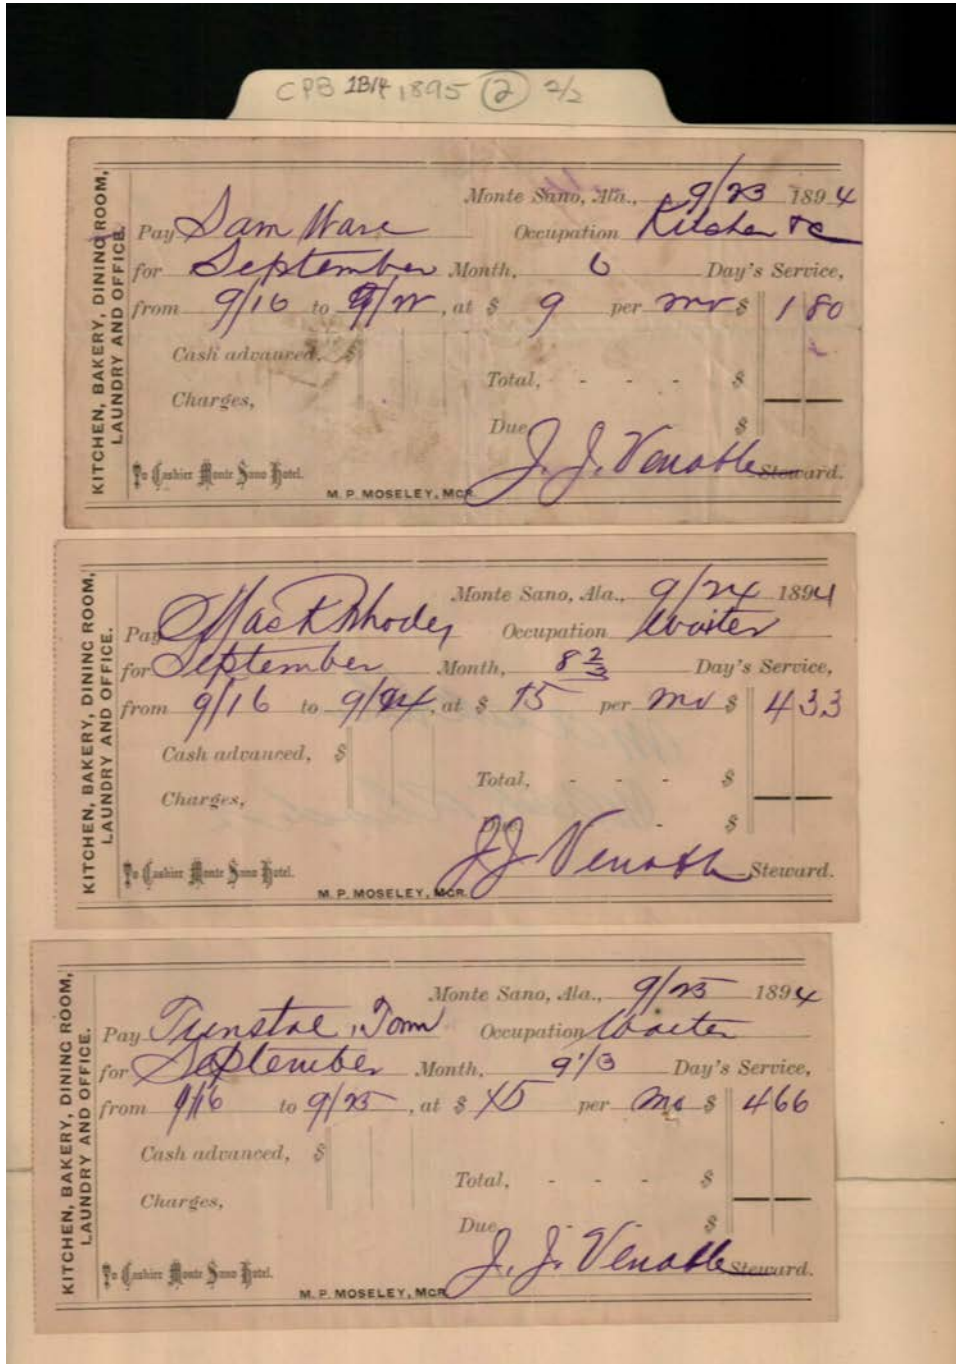 CPB 1B14 1895 (2) 2/2
KITCHEN, BAKERY, DINING ROOM,
LAUNDRY AND OFFICE.
Monte Sano, Ala., 9/23 1894
Pay Sam Ware Occupation Kitchen
for September Month, 6 Day's Service,
from 9/16 to 9/22, at $ 9 per mo $ 1 80
Cash advanced, $
Total, - - - $
Charges,
Due $
J. J. Venable Steward.
To Cashier Monte Sano Hotel.
M. P. MOSELEY, MGR.
KITCHEN, BAKERY, DINING ROOM,
LAUNDRY AND OFFICE.
Monte Sano, Ala., 9/24 1894
Pay Mack Rhodes Occupation Waiter
for September Month, 8 2/3 Day's Service,
from 9/16 to 9/24, at $ 15 per mo $ 4 33
Cash advanced, $
Total, - - - $
Charges,
Due - $
J J Venable Steward.
To Cashier Monte Sano Hotel.
M. P. MOSELEY, MGR.
KITCHEN, BAKERY, DINING ROOM,
LAUNDRY AND OFFICE.
Monte Sano, Ala., 9/25 1894
Pay Tunstal, Tom Occupation Waiter
for September Month, 9 1/3 Day's Service,
from 9/16 to 9/25, at $ 15 per mo $ 4 66
Cash advanced, $
Total, - - - $
Charges,
Due - $
J. J. Venable Steward.
To Cashier Monte Sano Hotel.
M. P. MOSELEY, MGR.